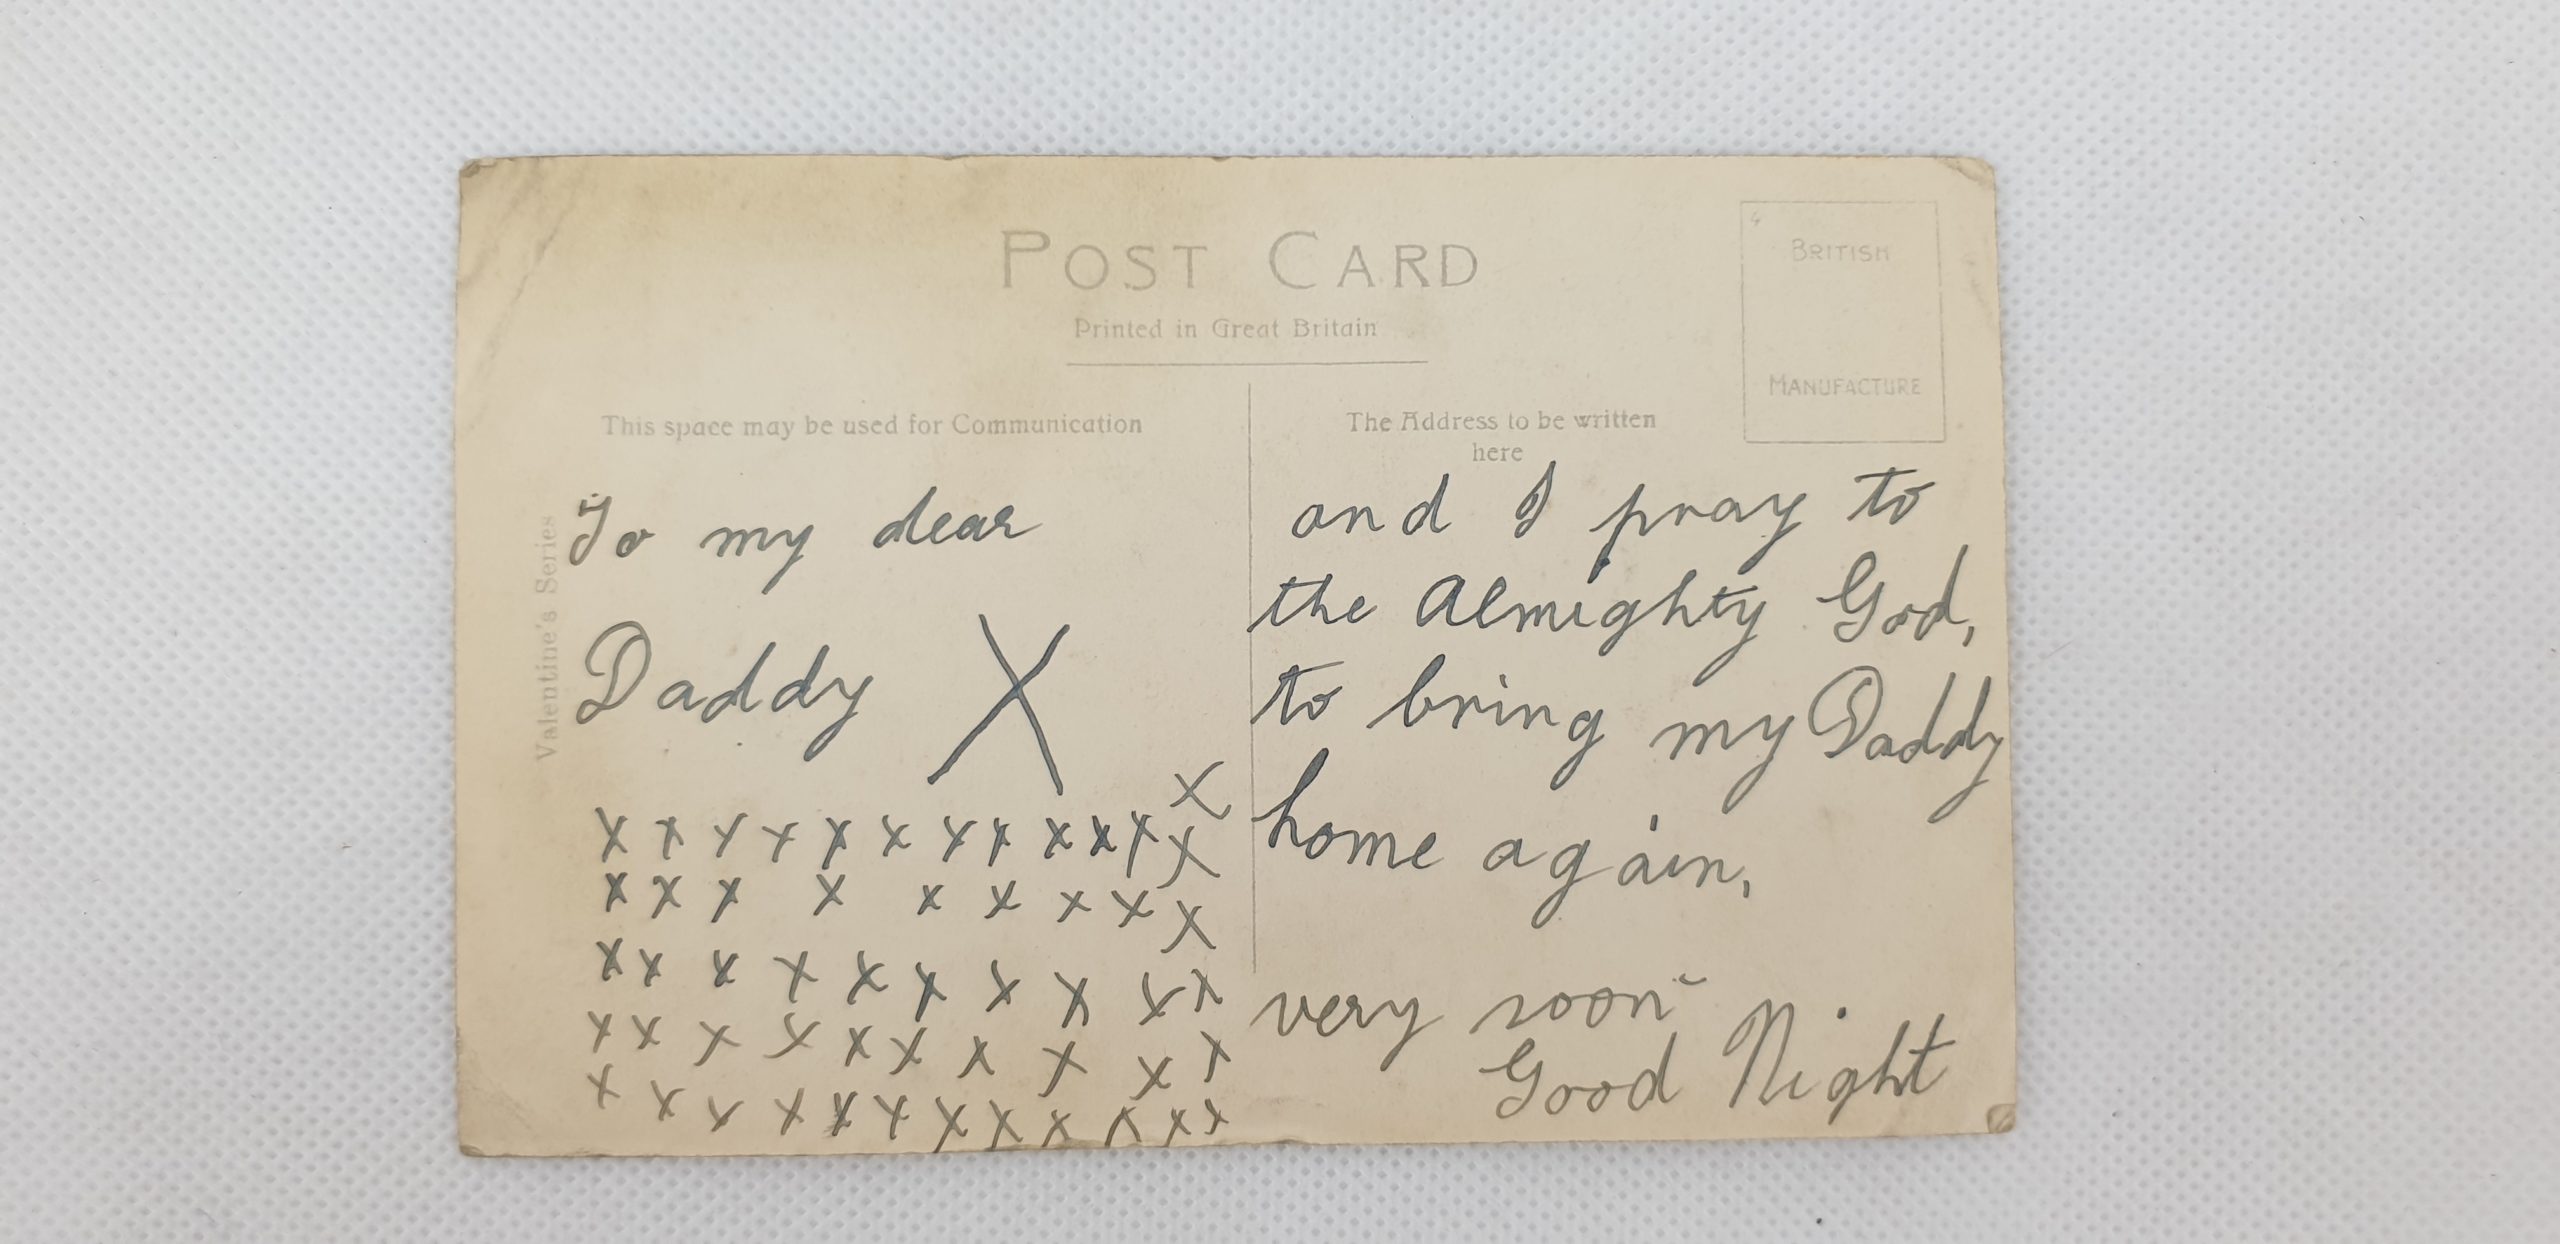 POST CARD
Printed in Great Britain
BRITISH
MANUFACTURE
This space may be used for Communication
The Address to be written
here
Valentine's Series
To my dear
Daddy X
X
X X X X X X X X X X X X
X X X X X X X X X
X X X X X X X X X X
X X X X X X X X X X
X X X X X X X X X X X X
and I pray to
the Almighty God,
to bring my Daddy
home again,
very soon
Good Night